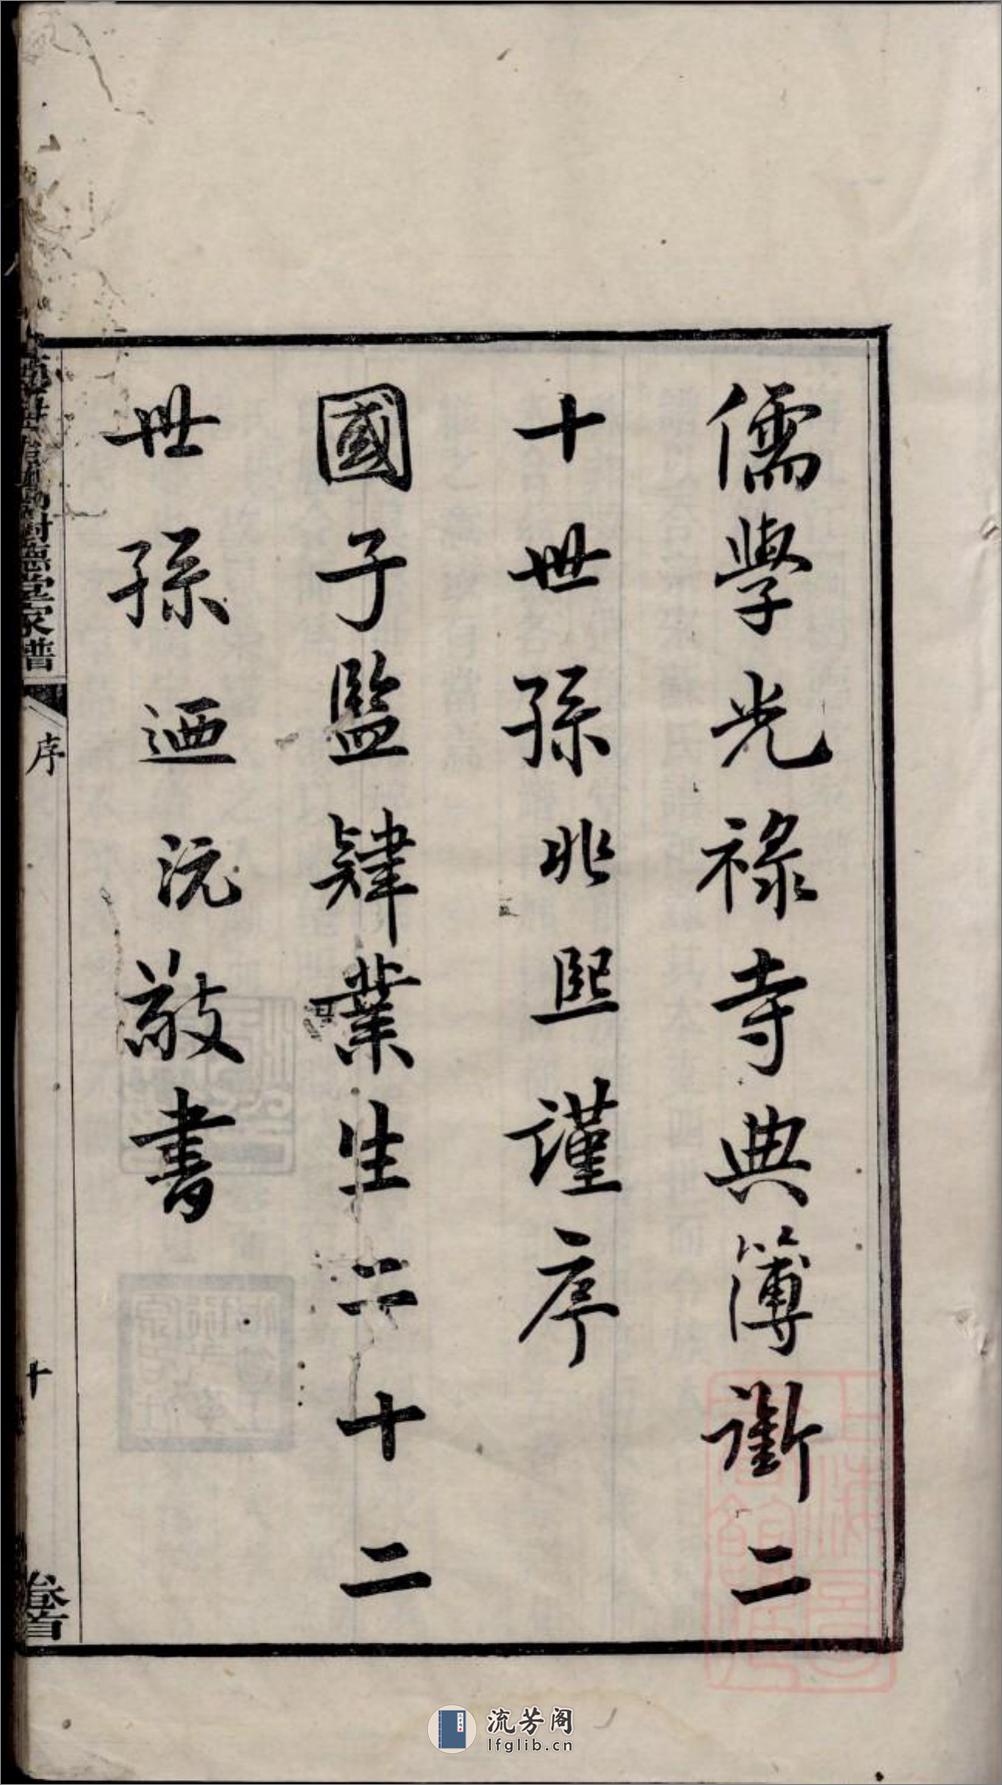 儒學光祿寺典簿銜二
十世孫兆熙謹序
國子監肄業生二十二
世孫迺沅敬書
樹德堂家譜
序
十
卷首
流芳阁
lfglib.cn